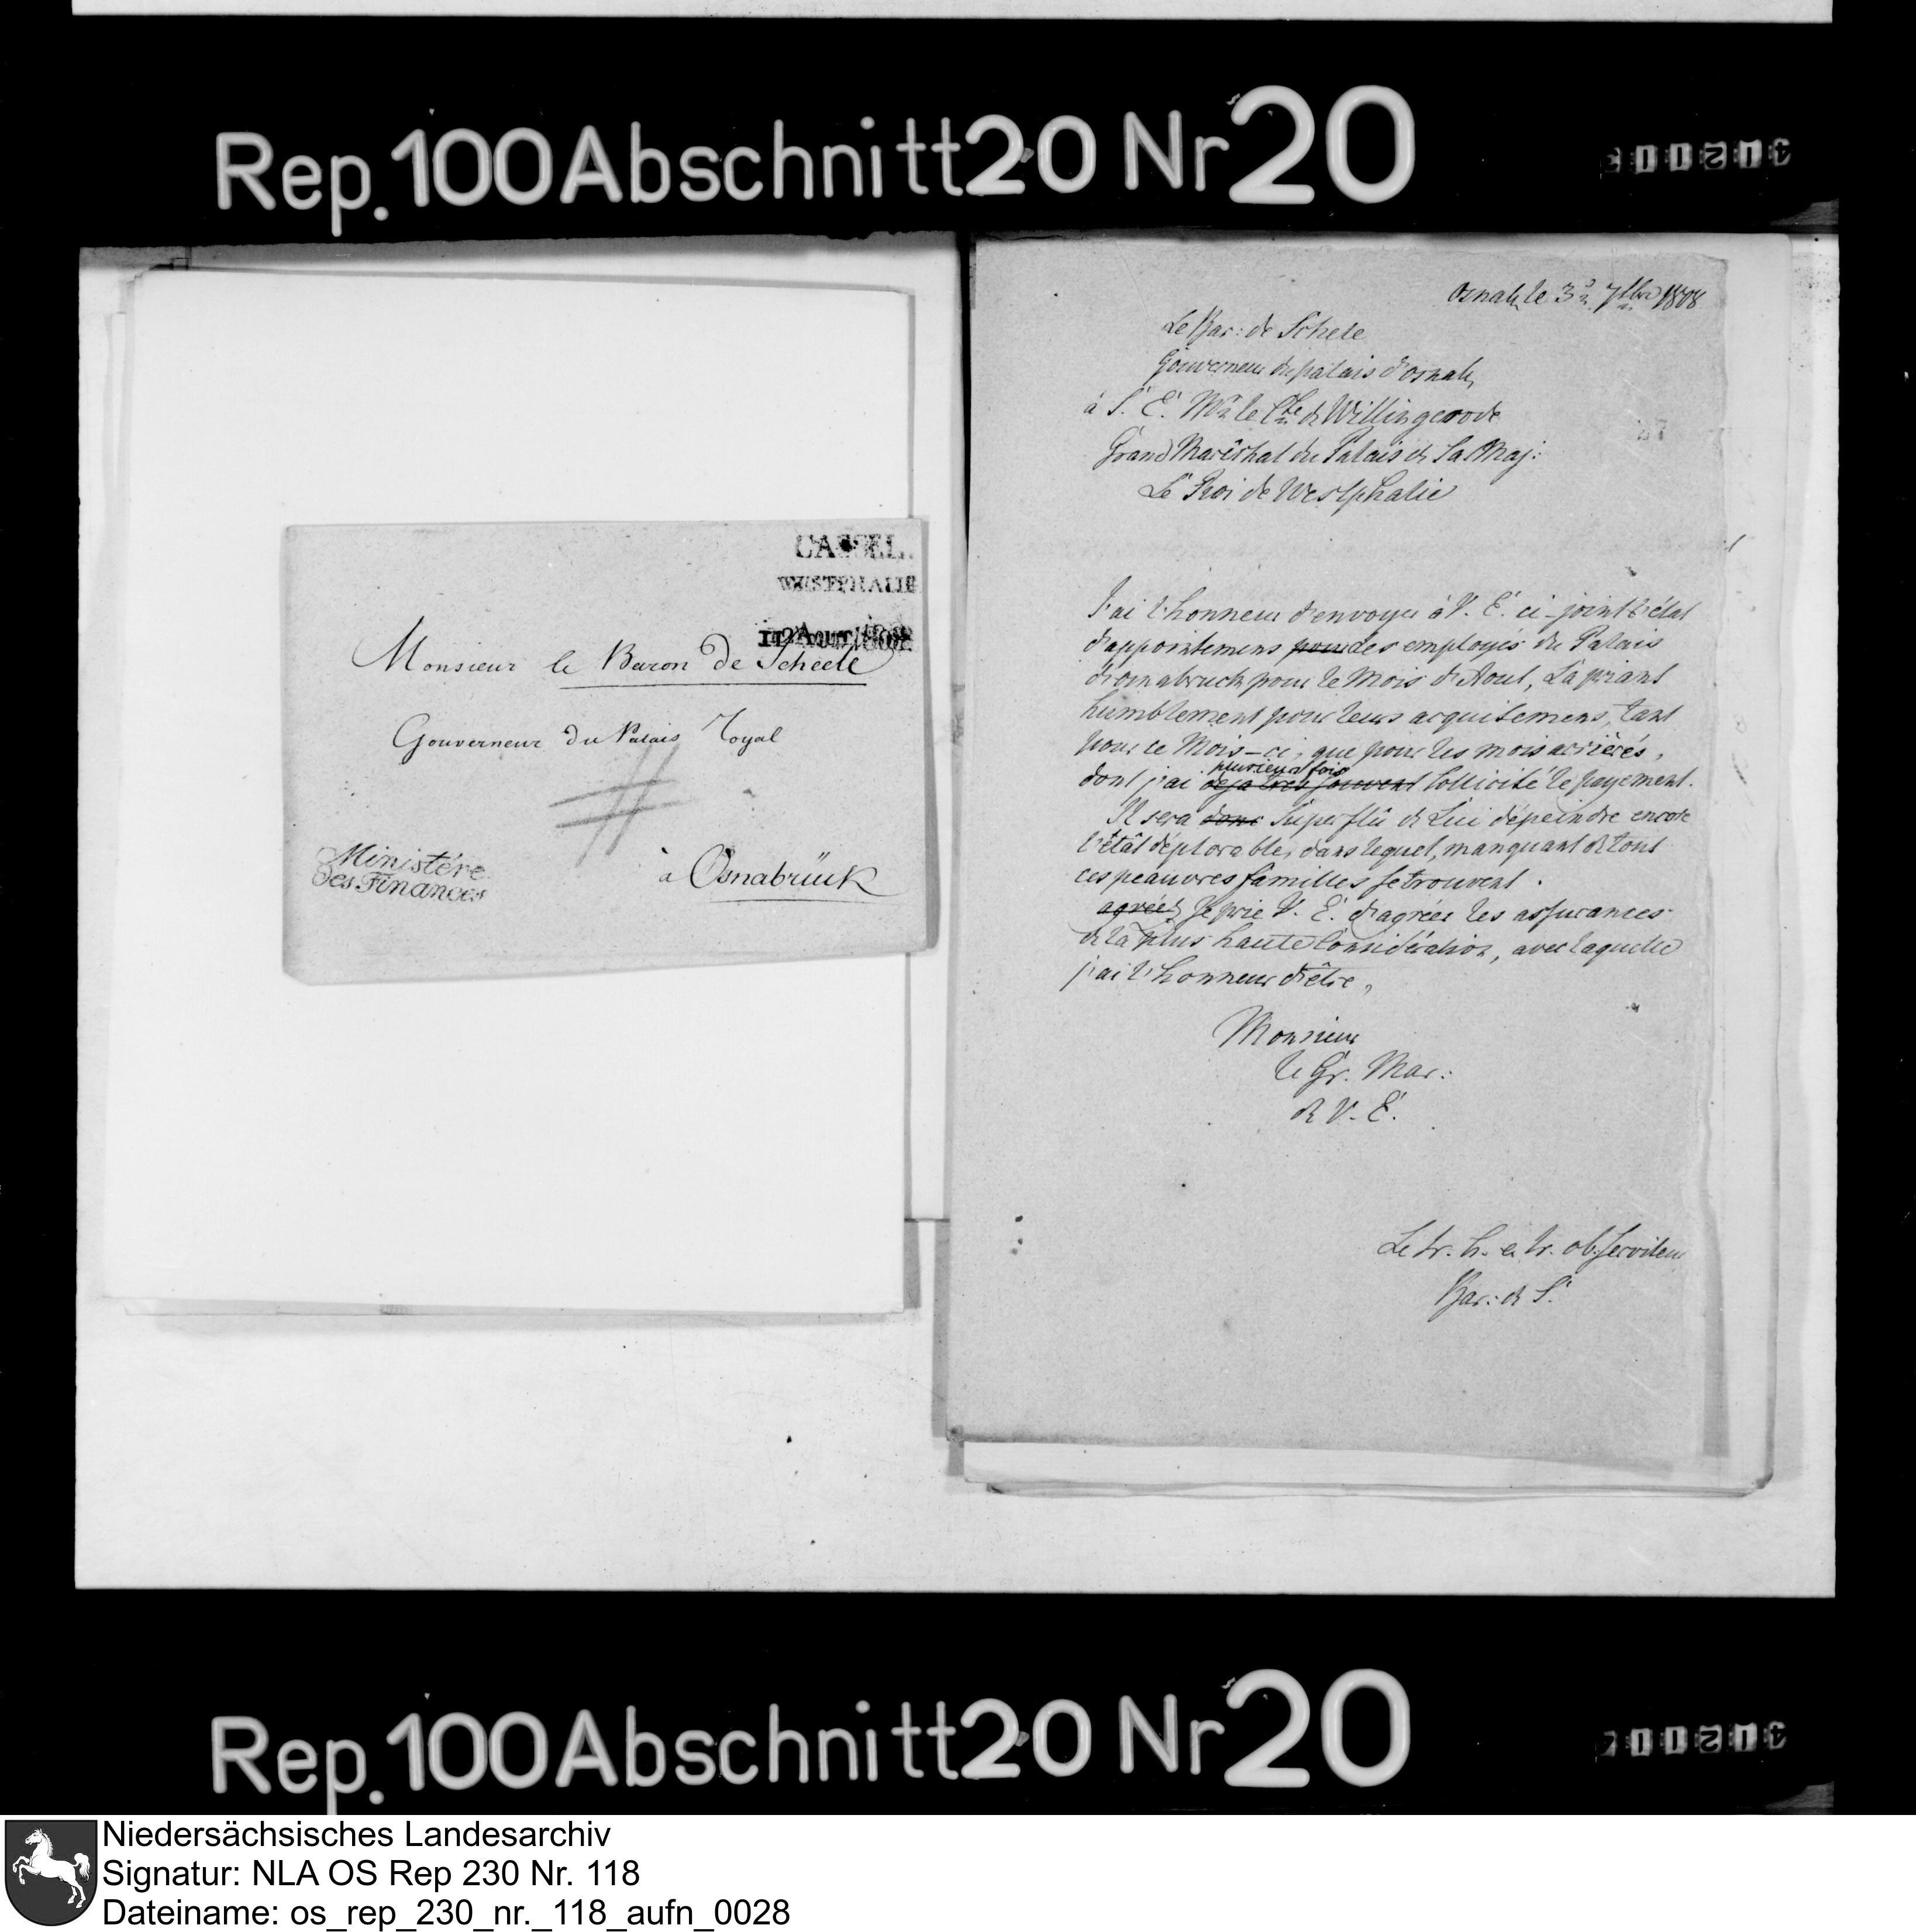 Rep. 100 Abschnitt 20 Nr 20
CASSEL.
WESTPHALIE
Monsieur le Baron de Scheele
Gouverneur du Palais Royal
Ministère
des Finances
à Osnabrück
Osnab, le 3 7bre 1808
Le Bar: de Schele
Gouverneur du palais d'osnab,
à S. E. Mr le Cte de Willingerode
Grand Marêchal du Palais de Sa Maj:
Le Roi de Westphalie
J'ai l'honneur d'envoyer à V. E. ci-joint l'état
d'appointemens pour des employés du Palais
d'osnabruck pour le Mois d'Aout, La priant
humblement pour leurs acquitemens, tant
pour ce Mois-ci, que pour les mois arriérés,
plusieurs fois
dont j'ai deja tres souvent sollicité le payement.
Il sera donc superflû de Lui dépeindre encore
l'état déplorable, dans lequel, manquant de tout
ces peauvres familles se trouvent.
agréez Je prie V. E. d'agréer les assurances
de la plus haute Considération, avec laquelle
j'ai l'honneur d'être,
Monsieur
le Gr. Mar:
de V. E.
Le tr. h. e. tr. ob. serviteur
Bar: de S.
Rep. 100 Abschnitt 20 Nr 20
Niedersächsisches Landesarchiv
Signatur: NLA OS Rep 230 Nr. 118
Dateiname: os_rep_230_nr._118_aufn_0028